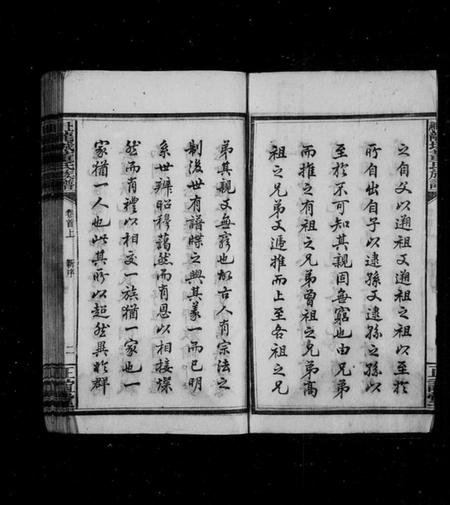 之自父以遡祖又遡祖之祖以至於
所自出自子以逮孫又逮孫之孫以
至於不可知其親固無窮也由兄弟
而推之有祖之兄弟曾祖之兄弟高
祖之兄弟又遞推而上至各祖之兄
弟其親又無窮也故古人有宗法之
制後世有譜牒之興其義一而已明
系世辨昭穆藹然而有恩以相接燦
然而有禮以相交一族猶一家也一
家猶一人也此其所以超然異於群
卷首上
新序
二